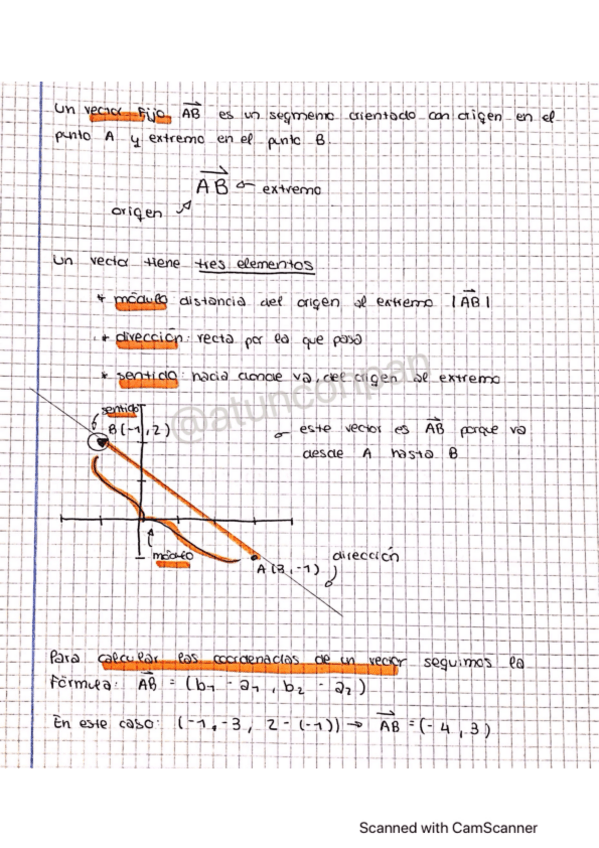 Un vector fijo AB es un segmento orientado con origen en el
punto A y extremo en el punto B.
AB extremo
origen
Un vector tiene tres elementos
* módulo distancia del origen al extremo |AB|
* dirección: recta por la que pasa
* sentido: hacia donde va, del origen al extremo
@atunconpan
sentido
B(-1,2)
este vector es AB porque va
desde A hasta B
módulo
A(3,-1)
dirección
Para calcular las coordenadas de un vector seguimos la
fórmula: AB = (b1 - a1, b2 - a2)
En este caso: (-1,-3, 2-(-1)) → AB = (-4,3)
Scanned with CamScanner